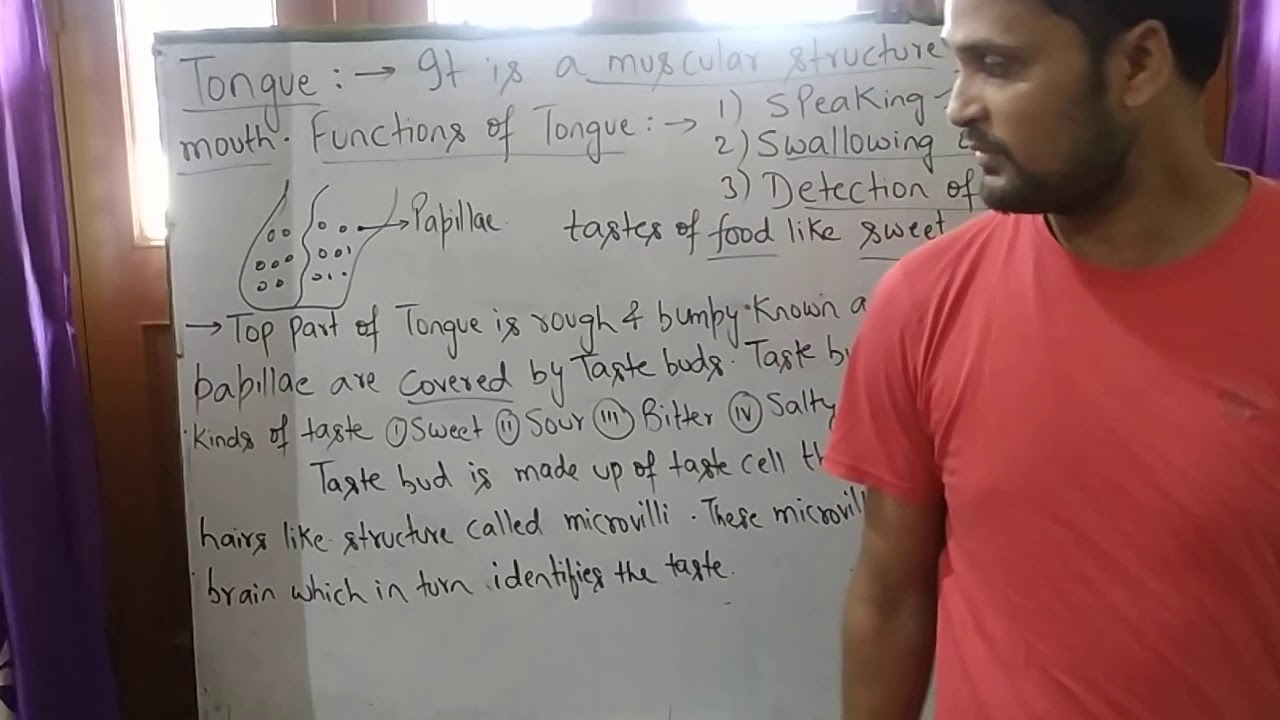 Tongue :→ It is a muscular structure
mouth. Functions of Tongue :→ 1) Speaking
2) Swallowing
3) Detection of
Papillae
tastes of food like sweet
→ Top part of Tongue is rough & bumpy. Known
papillae are covered by Taste buds. Taste
kinds of taste (i) Sweet (ii) Sour (iii) Bitter (iv) Salty
Taste bud is made up of taste cell
hairs like structure called microvilli. These
brain which in turn identifies the taste.